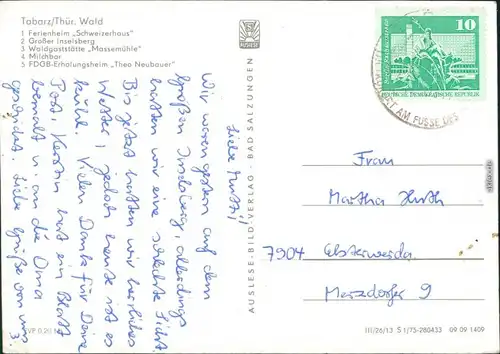 Tabarz/Thür. Wald
1 Ferienheim „Schweizerhaus"
2 Großer Inselsberg
3 Waldgaststätte „Massemühle"
4 Milchbar
5 FDGB-Erholungsheim „Theo Neubauer"
Liebe Mutti!
Wir waren gestern auf dem
großen Inselsberg, allerdings
hatten wir eine schlechte Sicht.
Bis jetzt hatten wir herrliches
Wetter, jedoch heute ist es
kühl. Vielen Dank für Deine
Post. Kerstin hat ein Blatt
bemalt u. an die Oma
geschickt. Liebe Grüße von uns 3
AUSLESE-BILD-VERLAG · BAD SALZUNGEN
10
DEUTSCHE DEMOKRATISCHE REPUBLIK
AM FUSSE DES
Frau
Martha Huth
7904 Elsterwerda
Merzdorfer 9
III/26/13 S 1/75-280433 09 09 1409